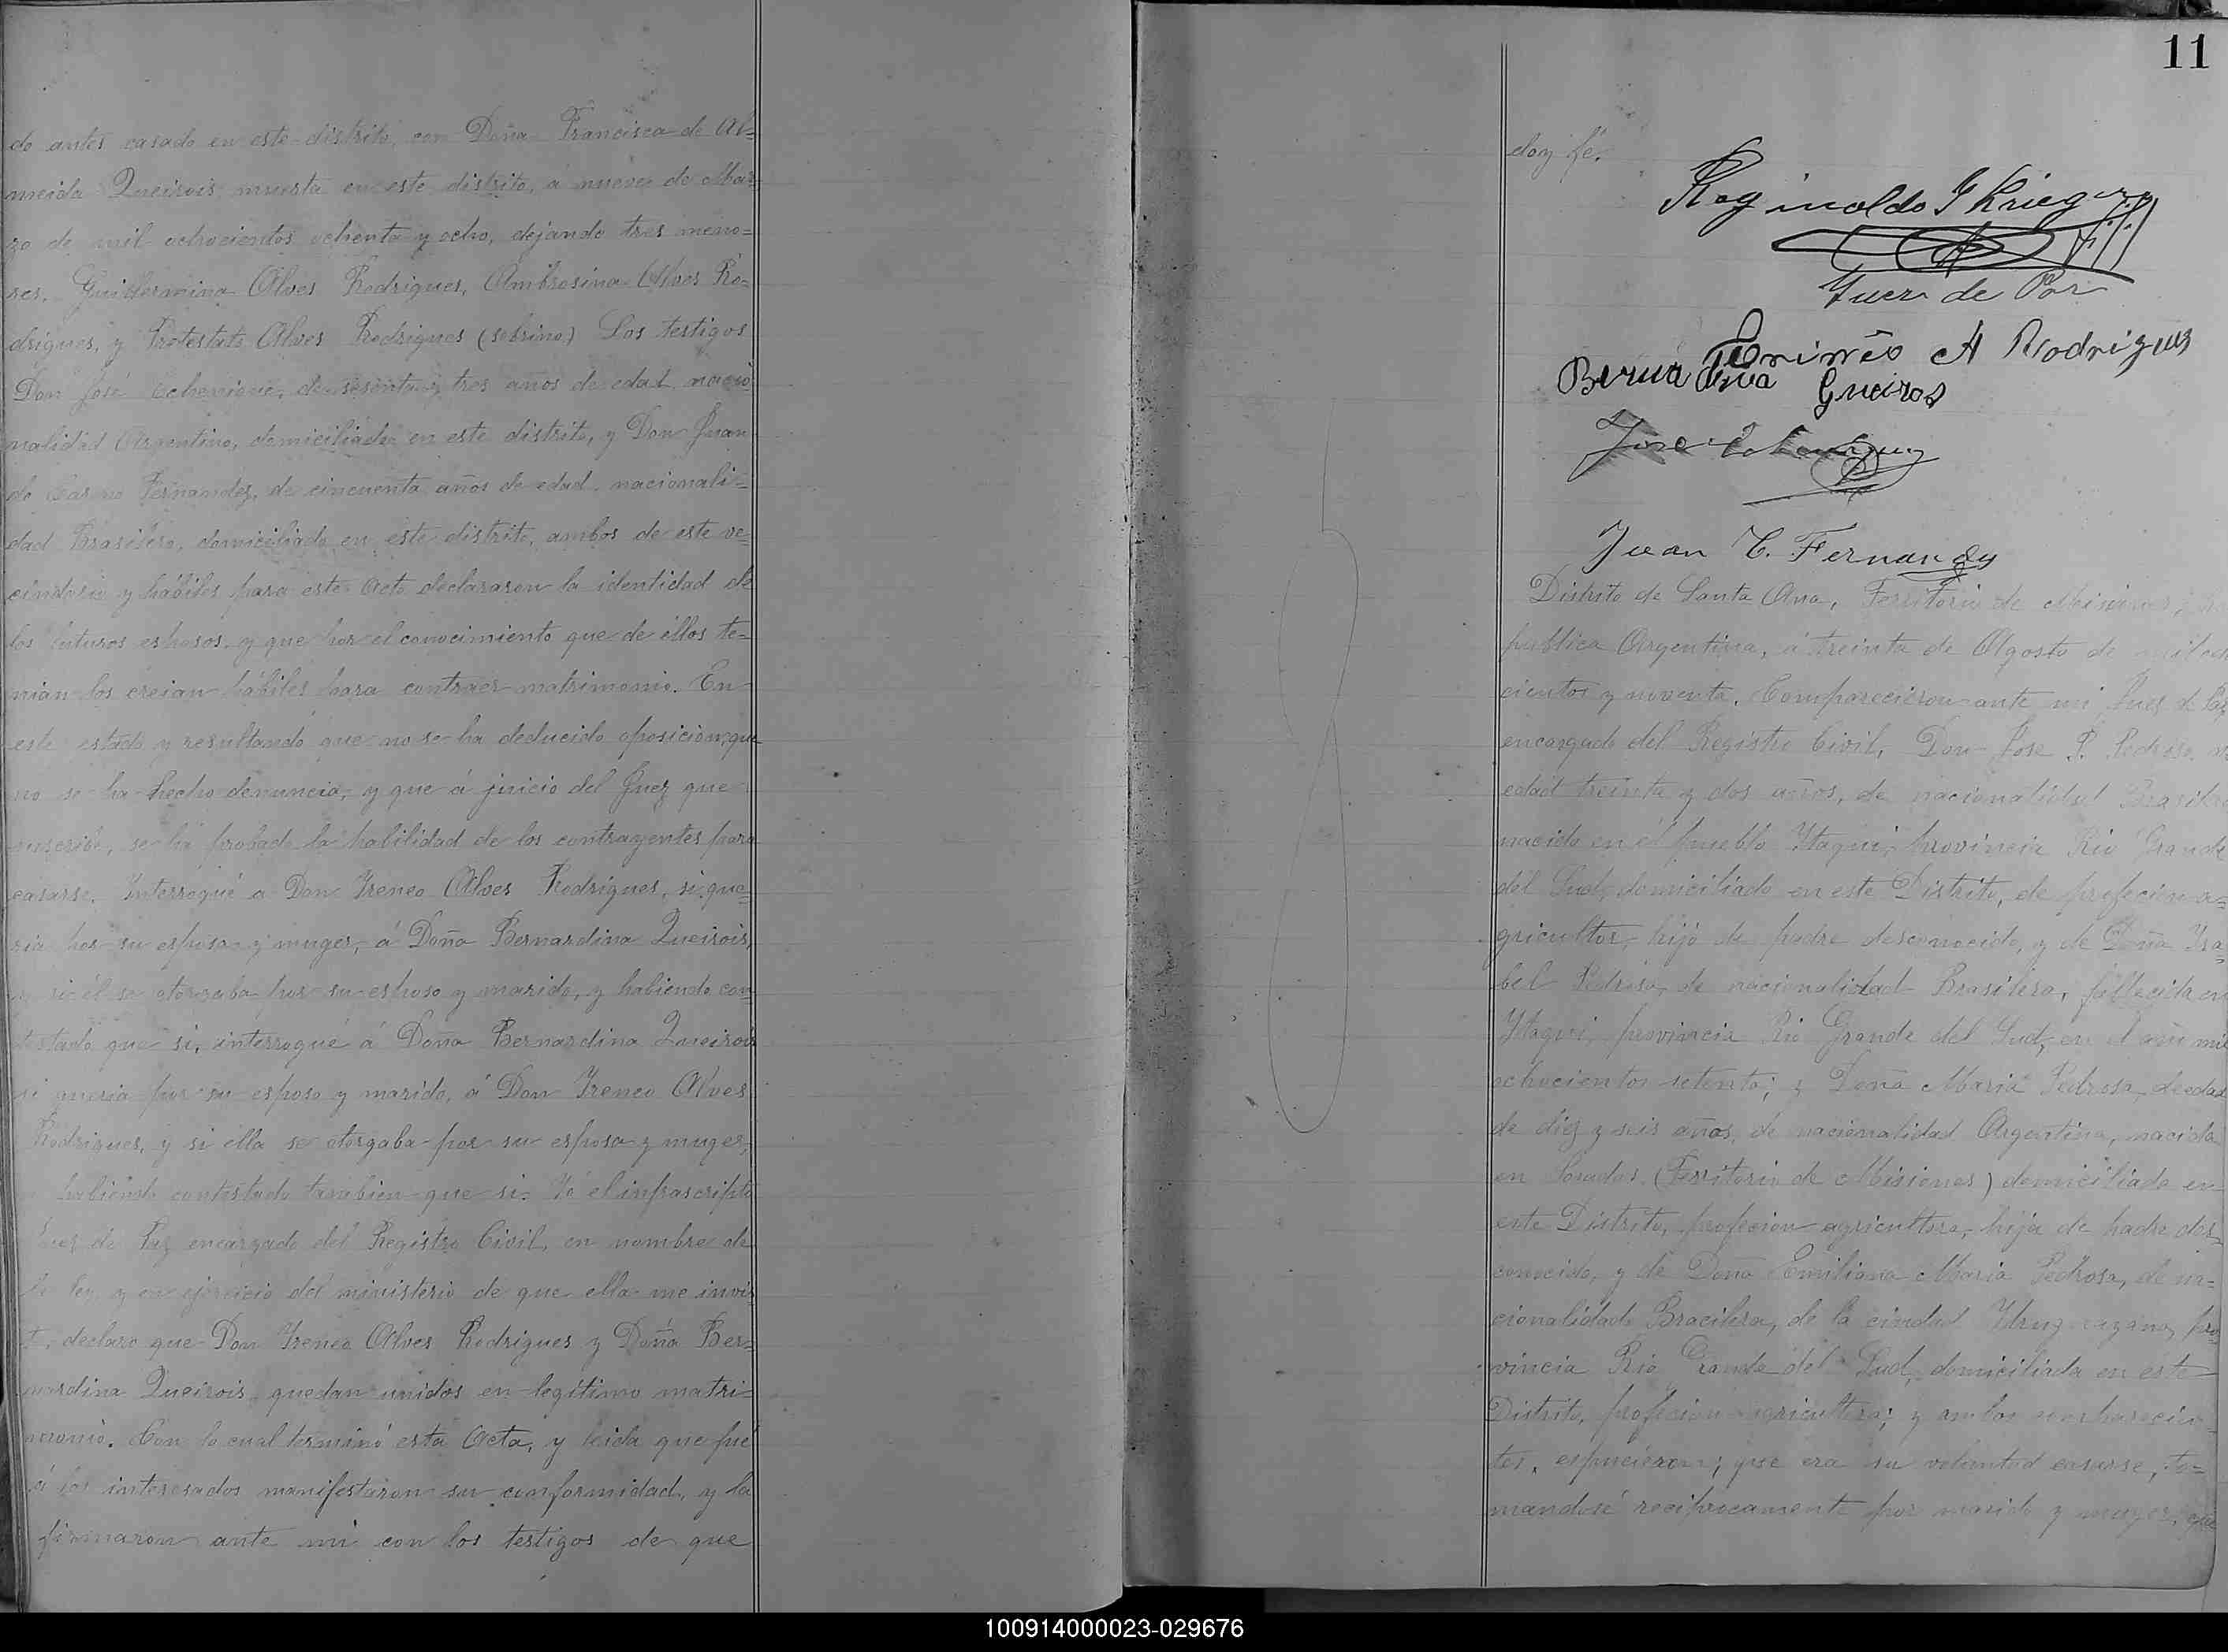 do antes casado en este distrito, con Doña Francisca de Al=
meida Queirois muerta en este distrito, a nueve de Mar=
zo de mil ochocientos ochenta y ocho, dejando tres meno=
res, Guillermina Alves Rodrigues, Ambrosina Alves Ro=
drigues, y Protestato Alves Rodrigues (sobrino) Los testigos
Don José Echenique, de sesenta y tres años de edad nacio
nalidad Argentino, domiciliado en este distrito, y Don Juan
de Fernandez, de cincuenta años de edad, nacionali=
dad Brasilero, domiciliado en este distrito, ambos de este ve=
cindario y hábiles para este Acto declararon la identidad de
los futuros esposos, y que por el conocimiento que de ellos te=
nian los creian hábiles para contraer matrimonio. En
este estado y resultando que no se ha deducido oposicion, que
no se ha hecho denuncia, y que á juicio del Juez que
suscribe, se ha probado la habilidad de los contrayentes para
casarse. Interrogué a Don Yreneo Alves Rodrigues, si que=
ria por su esposa y muger, á Doña Bernardina Queirois,
y si él se otorgaba por su esposo y marido, y habiendo con=
testado que si, interrogué á Doña Bernardina Queirois
si queria por su esposo y marido, á Don Yreneo Alves
Rodrigues, y si ella se otorgaba por su esposa y muger,
y habiendo contestado tambien que si. Yo el infrascripto
Juez de Paz encargado del Registro Civil, en nombre de
la ley y en ejercicio del ministerio de que ella me invis
te, declaro que Don Yreneo Alves Rodrigues y Doña Ber=
nardina Queirois quedan unidos en legítimo matri=
monio. Con lo cual terminó esta Acta, y leida que fué
á los interesados manifestaron su conformidad, y la
firmaron ante mi con los testigos de que
11
doy fé.
Reginaldo G Krieger
Juez de Paz
A Rodrigues
Bernardina Gueiros
Jose Echenique
Juan C. Fernandez
Distrito de Santa Ana, Territorio de Misiones, Re
publica Argentina, á treinta de Agosto de mil och
cientos y noventa. Comparecieron ante mi Juez de Paz
encargado del Registro Civil, Don Jose P. Pedroso, de
edad treinta y dos años, de nacionalidad Brasilero
nacido en el pueblo Ytaqui, provincia Rio Grande
del Sud, domiciliado en este Distrito, de profecion a=
gricultor, hijo de padre desconocido, y de Doña Ysa=
bel Pedrosa, de nacionalidad Brasilera, fallecida en
Ytaqui, provincia Rio Grande del Sud, en el año mil
ochocientos setenta; y Doña Maria Pedrosa, de edad
de diez y seis años, de nacionalidad Argentina, nacida
en Posadas (Territorio de Misiones) domiciliada en
este Distrito, profecion agricultora, hija de padre des=
conocido, y de Doña Emiliana Maria Pedrosa, de na=
cionalidad Bracilera, de la ciudad pro=
vincia Rio Grande del Sud, domiciliada en este
Distrito, profecion agricultora; y ambos comparecien
tes, espucieron; que era su voluntad casarse, to=
mandose reciprocamente por marido y muger, que
100914000023-029676